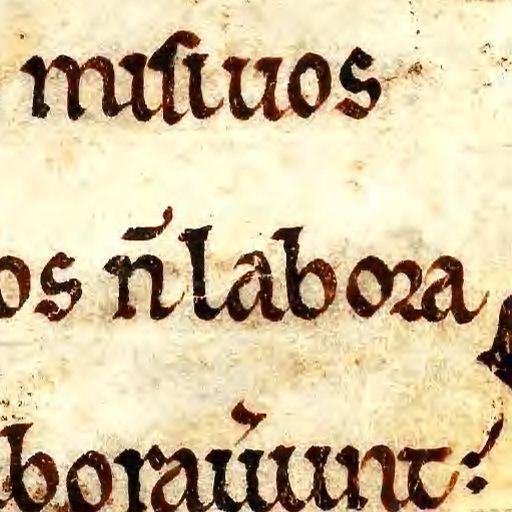 misi uos
os n̄ labora
borau͛unt: